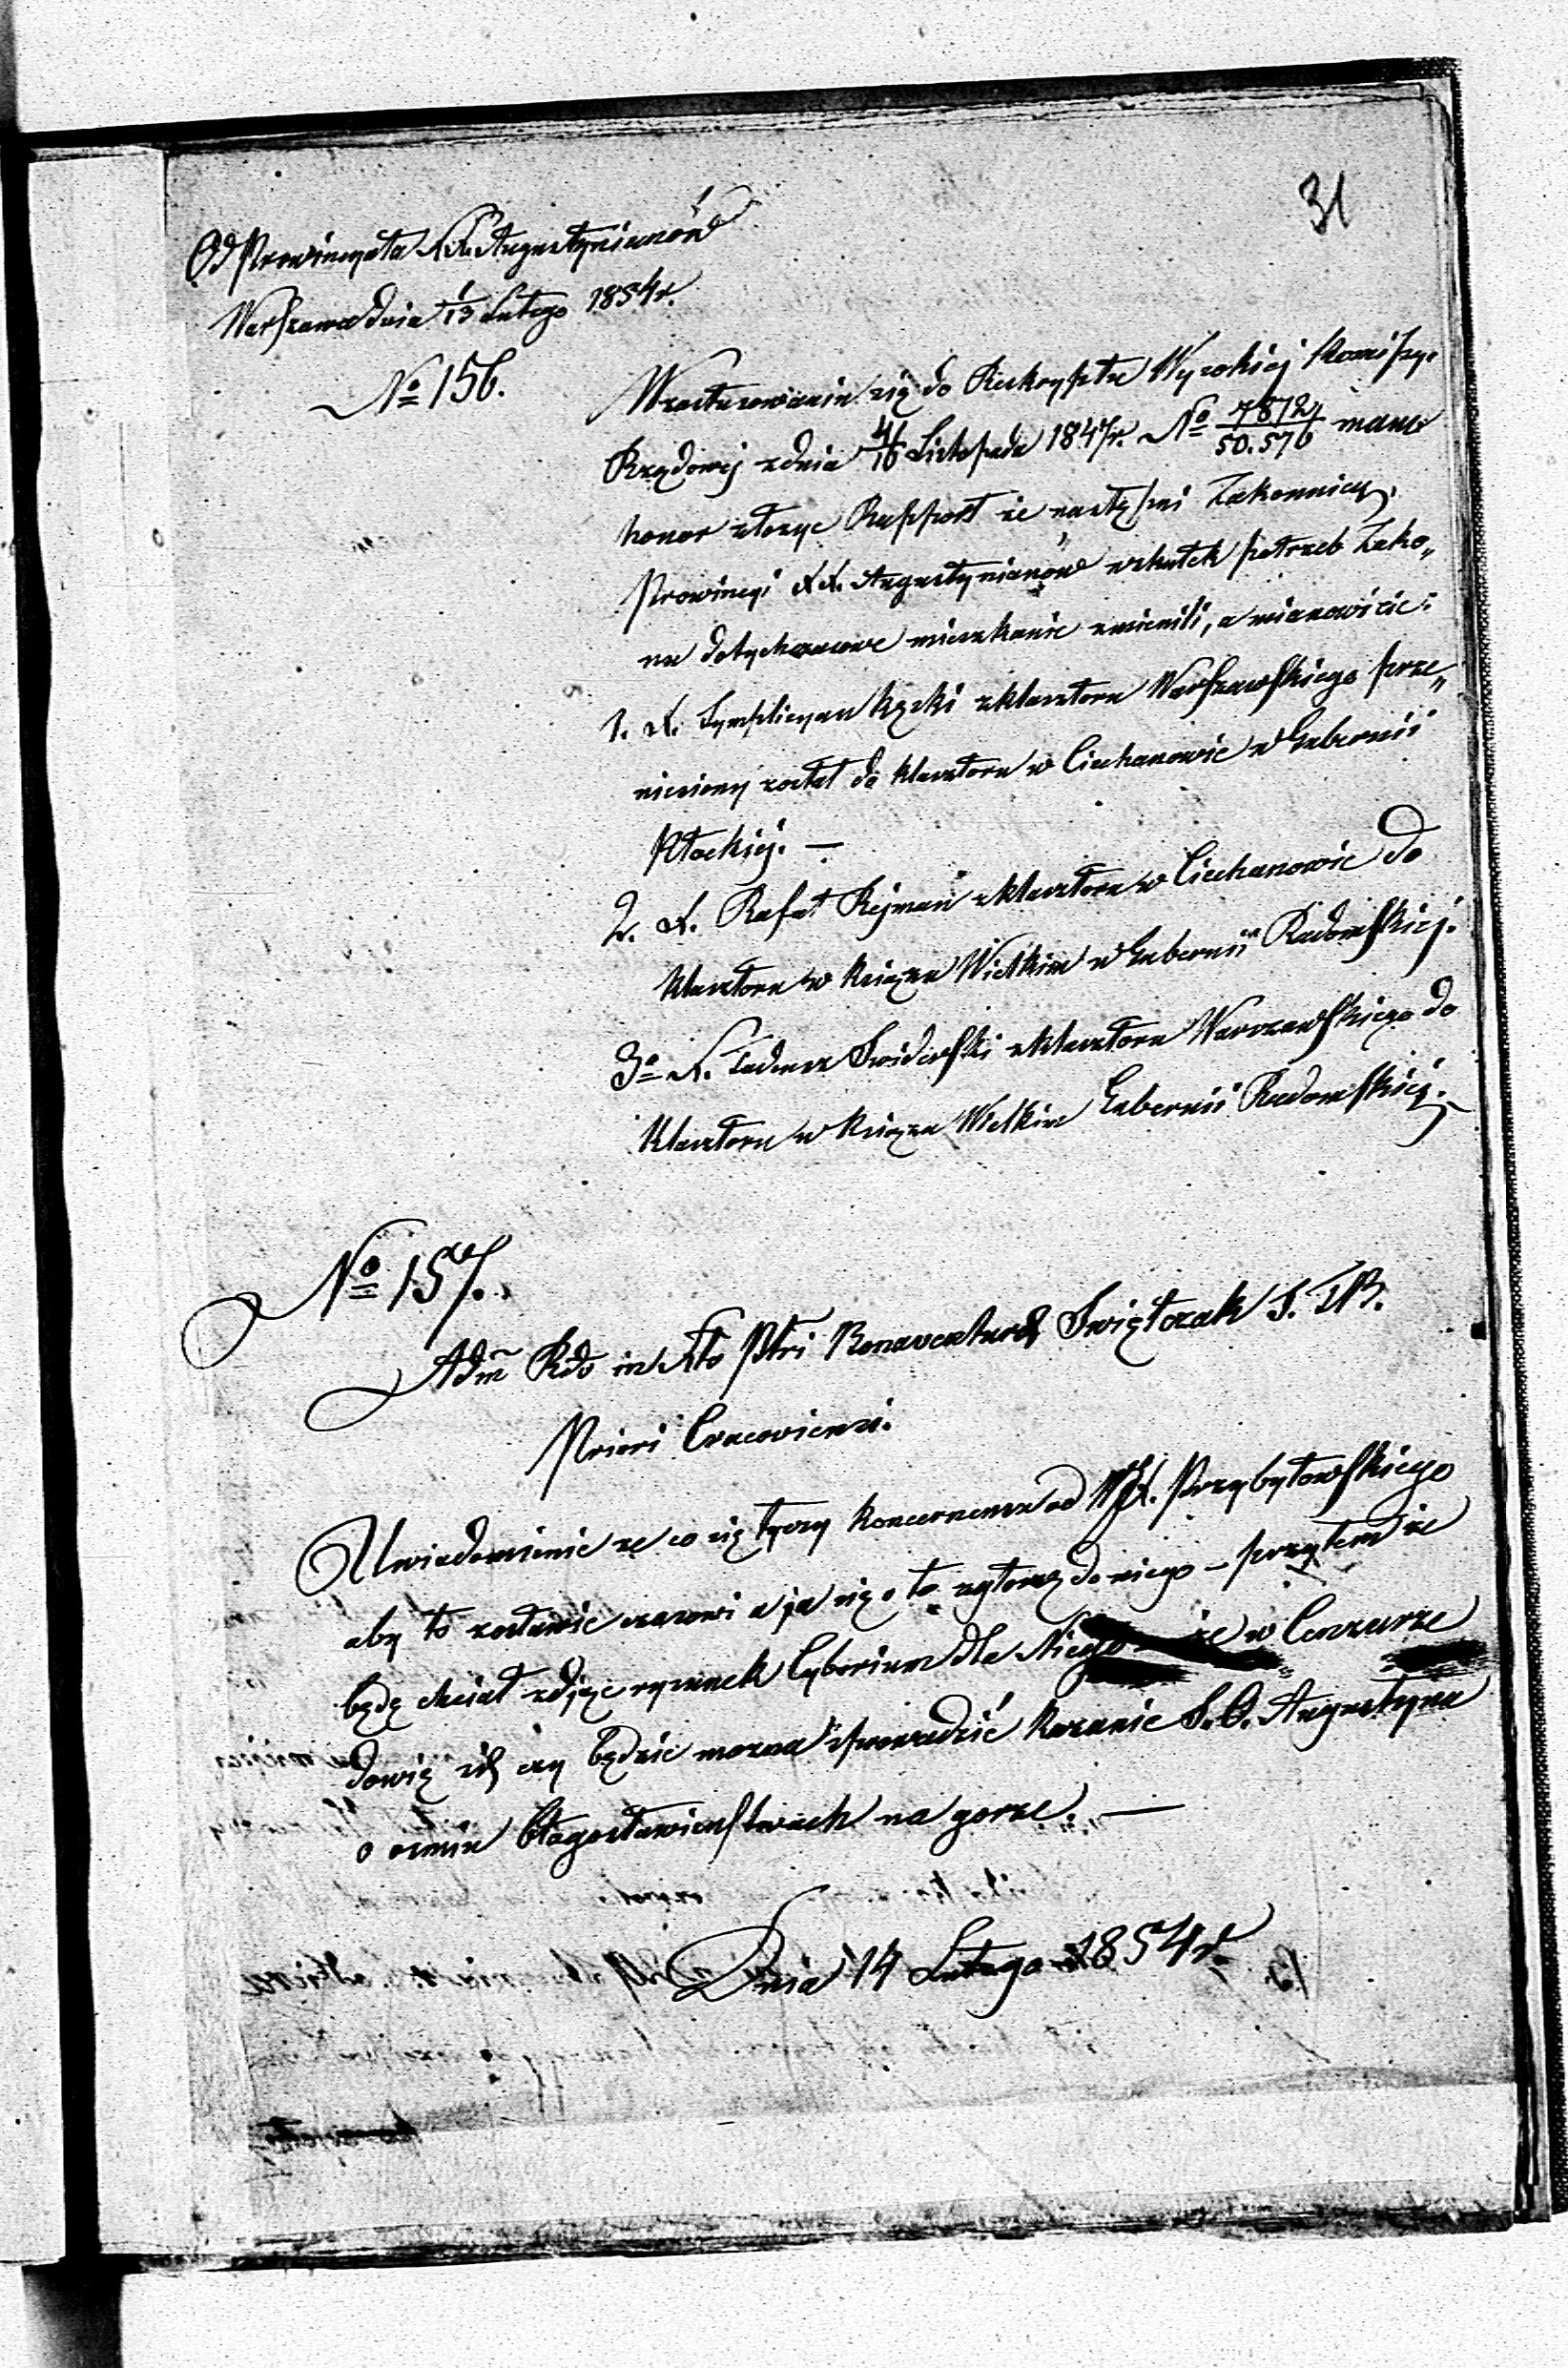 31
Od Prowincyała XX. Augustynianów
Warszawa dnia 1/13 Lutego 1854 r.
№ 156.
W zastosowaniu się do Reskryptu Wysokiej Komissyi
Rządowej z dnia 4/16 Listopada 1847 r. № 7872/50.576 mam
honor złożyc Rapport że następni Zakonnicy,
Prowincyi XX. Augustynianów wskutek potrzeb Zako„
nu dotychczasowe mieszkanie zmienili, a mianowicie:
1. X. Symplicyan Kęcki z klasztoru Warszawskiego prze„
niesiony został do klasztoru w Ciechanowie w Gubernii
Płockiej. —
2. X. Rafał Rejman z klasztoru w Ciechanowie do
klasztoru w Książu Wielkim w Gubernii Radomskiej.
3o X. Tadeusz Swiderski z klasztoru Warszawskiego do
klasztoru w Książu Wielkim Gubernii Radomskiej.
№ 157.
Adm Rdo in Xto Ptri Bonaventurae Swiętczak S. T. B.
Priori Cracoviensi.
Uwiadomienie że co się tyczy koncernensu od WJX. Przybyłowskiego
aby to zostawić czasowi a ja się o to zgłoszę do niego – przytem że
będę chciał zdjąc rysunek Cyborium dla Niego – że w Cenzurze
dowię się czy będzie mozna sprowadzić kazanie S. O. Augustyna
o osmiu błagosławieństwach na gorze. —
Dnia 14 Lutego 1854 r.